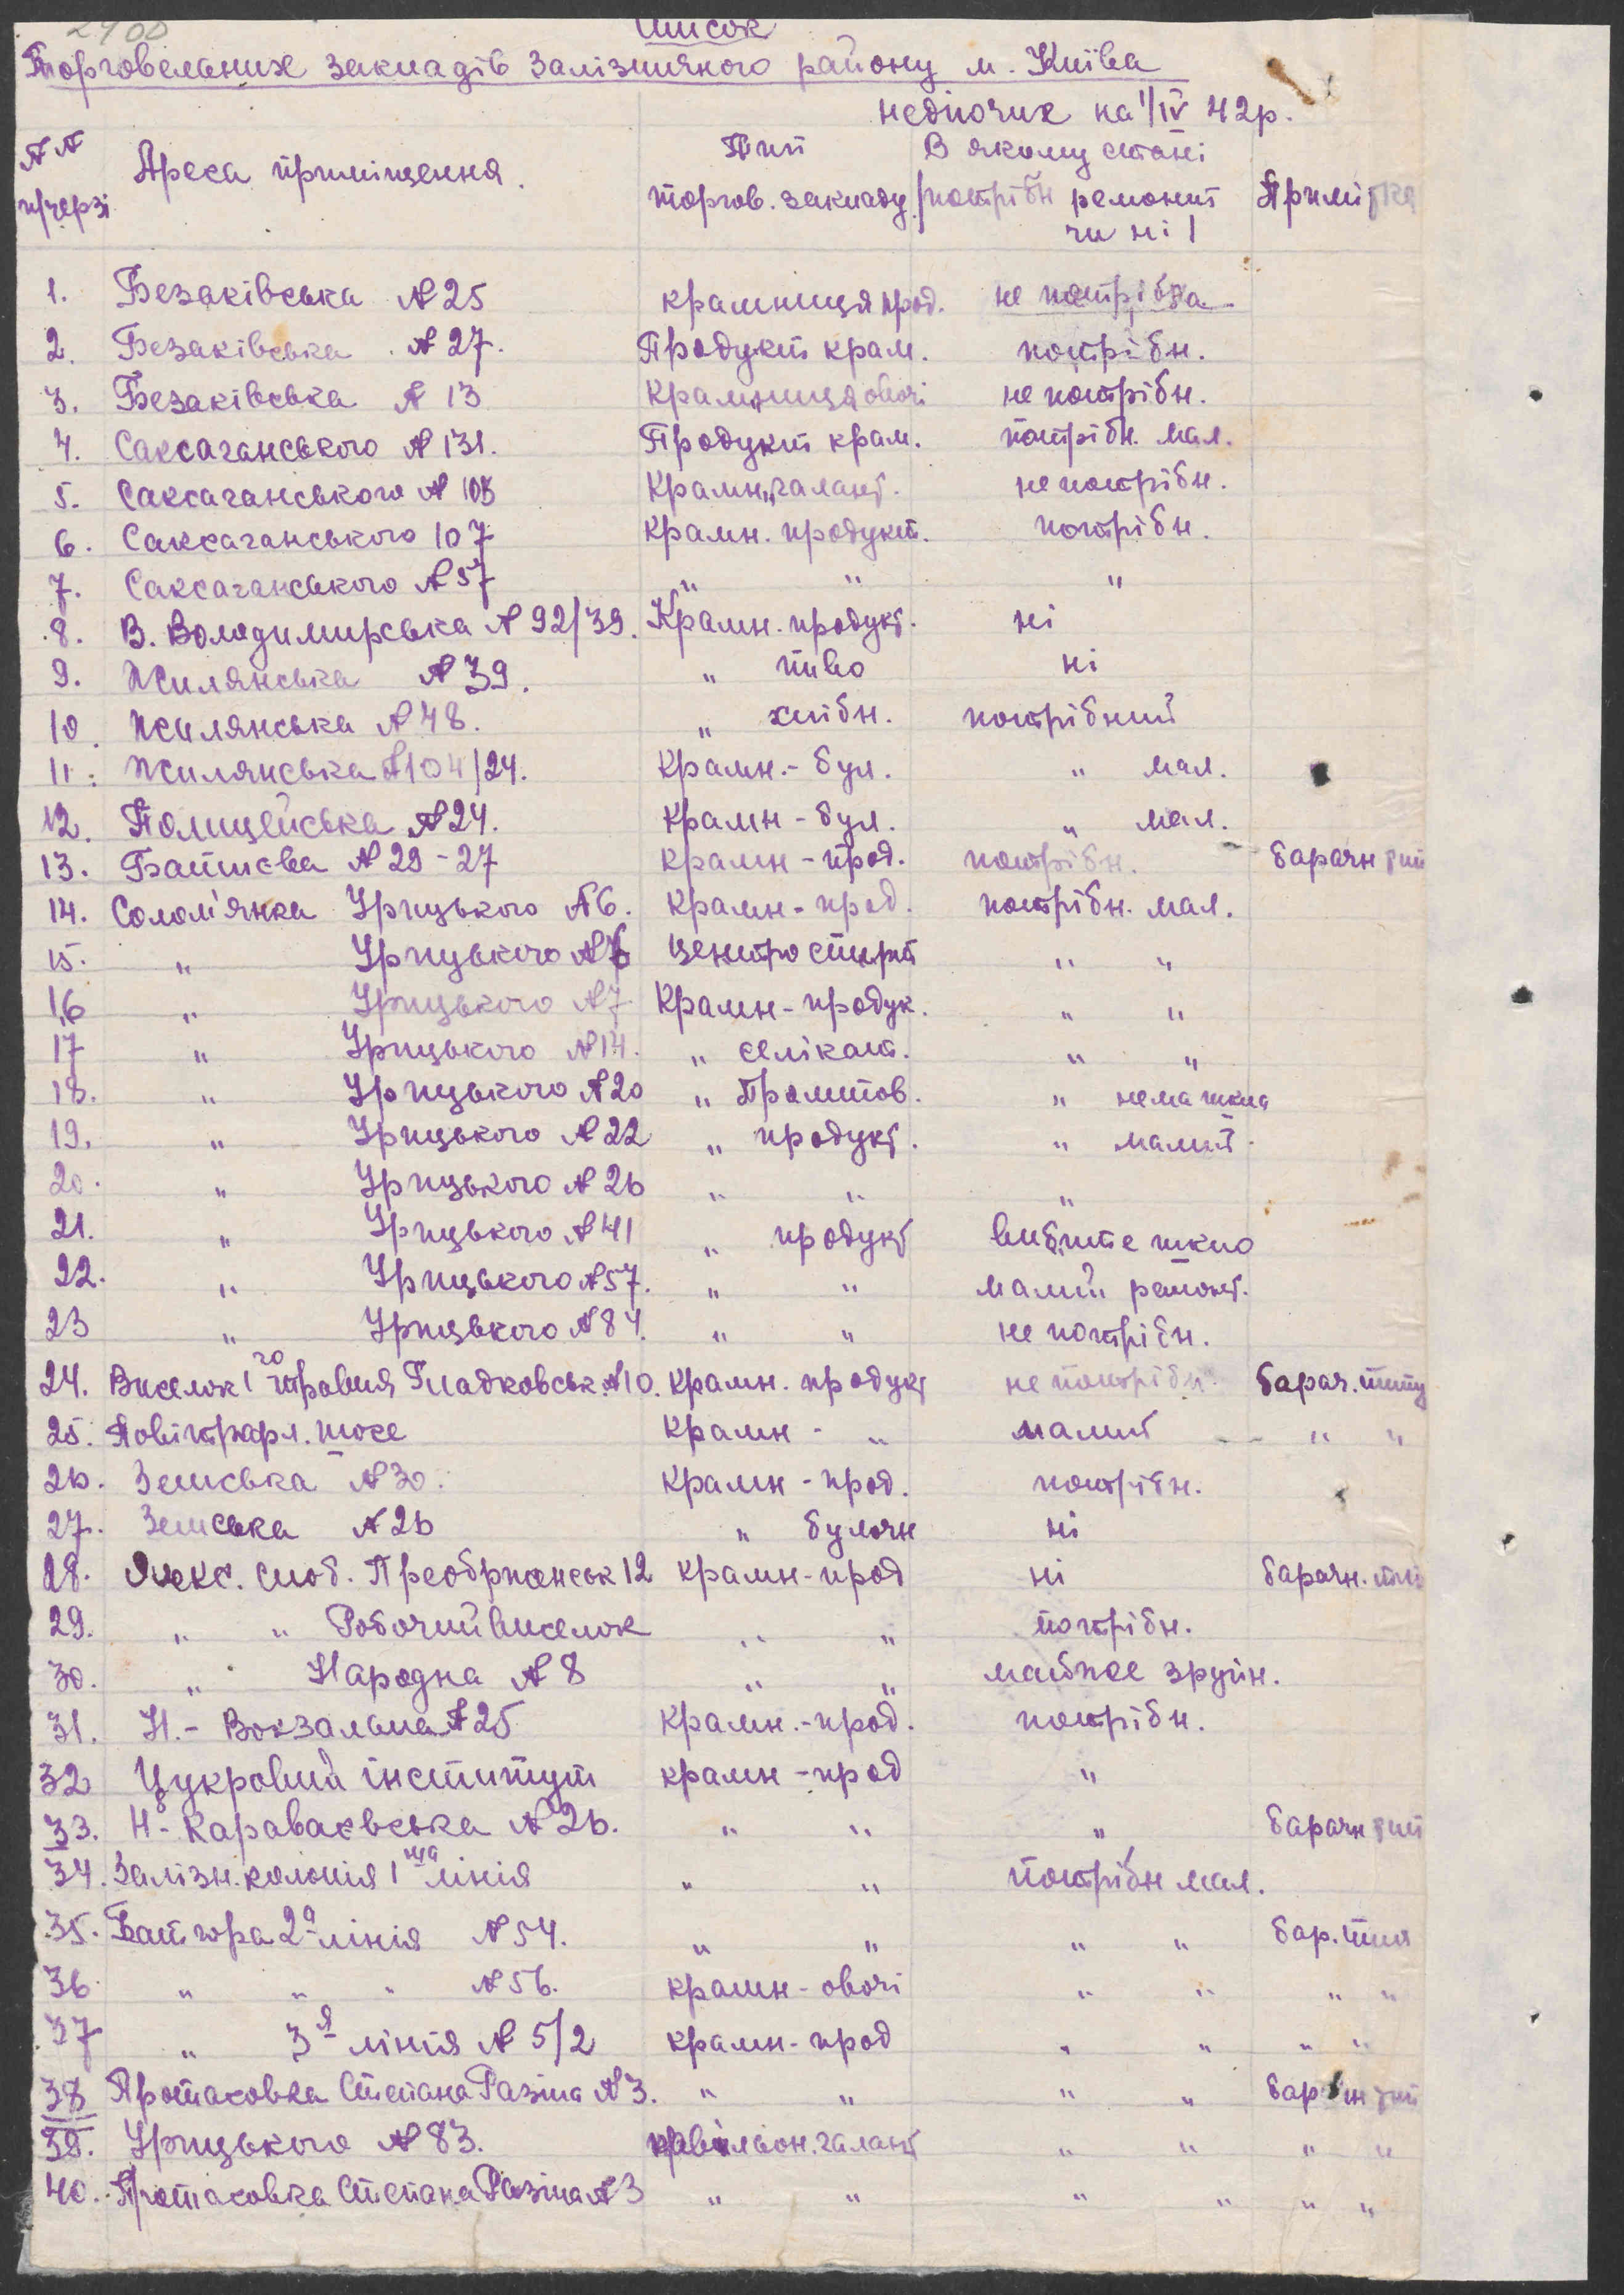 2400
Список
Торговельних закладів Залізничного району м. Київа
недіючих на 1/IV 42р.
№№ п/черзі Адреса приміщення. Тип торгов. закладу В якому стані /потрібн ремонт чи ні/ Примітка
1. Безаківська № 25 крамниця прод. не потрібна
2. Безаківська № 27. Продукт крам. потрібн.
3. Безаківська № 13 Крамниця овочі не потрібн.
4. Саксаганського № 131. Продукт крам. потрібн. мал.
5. Саксаганського № 105 Крамн. галант. не потрібн.
6. Саксаганського 107 Крамн. продукт. потрібн.
7. Саксаганського № 57 " " "
8. В. Володимирська № 92/39. Крамн. продукт. ні
9. Жилянська № 39. " пиво ні
10. Жилянська № 48. " хлібн. потрібний
11. Жилянська № 104/24. Крамн. - бул. " мал.
12. Поліцейська № 24. крамн - бул. " мал.
13. Батиєва № 29-27 крамн - прод. потрібн. барачн тип
14. Солом'янка Урицького №6. крамн - прод. потрібн. мал.
15. " Урицького № 6 Центро спирт " "
16 " Урицького № 7 Крамн - продук. " "
17 " Урицького № 14. " " "
18. " Урицького № 20 " Промтов. " нема шкла
19. " Урицького № 22 " продукт. " малий
20. " Урицького № 26 " " "
21. " Урицького № 41 " продукт вибите шкло
22. " Урицького № 57. " " малий ремонт.
23 " Урицького № 84. " " не потрібн.
24. Виселок 1го травня Гладковськ №10. крамн. продукт не потрібн барач. типу
25. Повітрофл. шосе крамн - " малий " "
26. Земська № 30. крамн - прод. потрібн.
27. Земська № 26 " булочн ні
28. Олекс. слоб. Преображенськ 12 крамн - прод ні барачн. тип
29. " " Робочий виселок " " потрібн.
30. " Народна № 8 " " майже зруйн.
31. Н. - Вокзальна № 25 крамн. - прод. потрібн.
32 Цукровий інститут крамн - прод "
33. Н - Караваєвська № 26. " " " барачн тип
34. Залізн. колонія 1ша лінія " " потрібн мал.
35. Бат гора 2а лінія № 54. " " " " бар. тип
36 " " " № 56. крамн - овочі " " " "
37 " 3я лінія № 5/2 крамн - прод " " " "
38 Протасовка Степана Разіна № 3. " " " " барачн тип
39. Урицького № 83. павільон. галант " " " "
40. Протасовка Степана Разіна № 3 " " " " " "